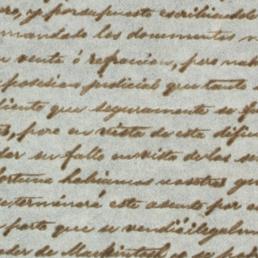 ro, yo por supuesto escribiendole
mandado los documentos n
u venta ó reparicion, pero nab
posesion, judicial que tanto
liento que seguramente se fo
pero en vista de esta dificu
der su fallo en vista de las se
fortuna habiamos nosotros que
terminará este asunto por e
parte que se vendió ilegalm
der de Mackintosh